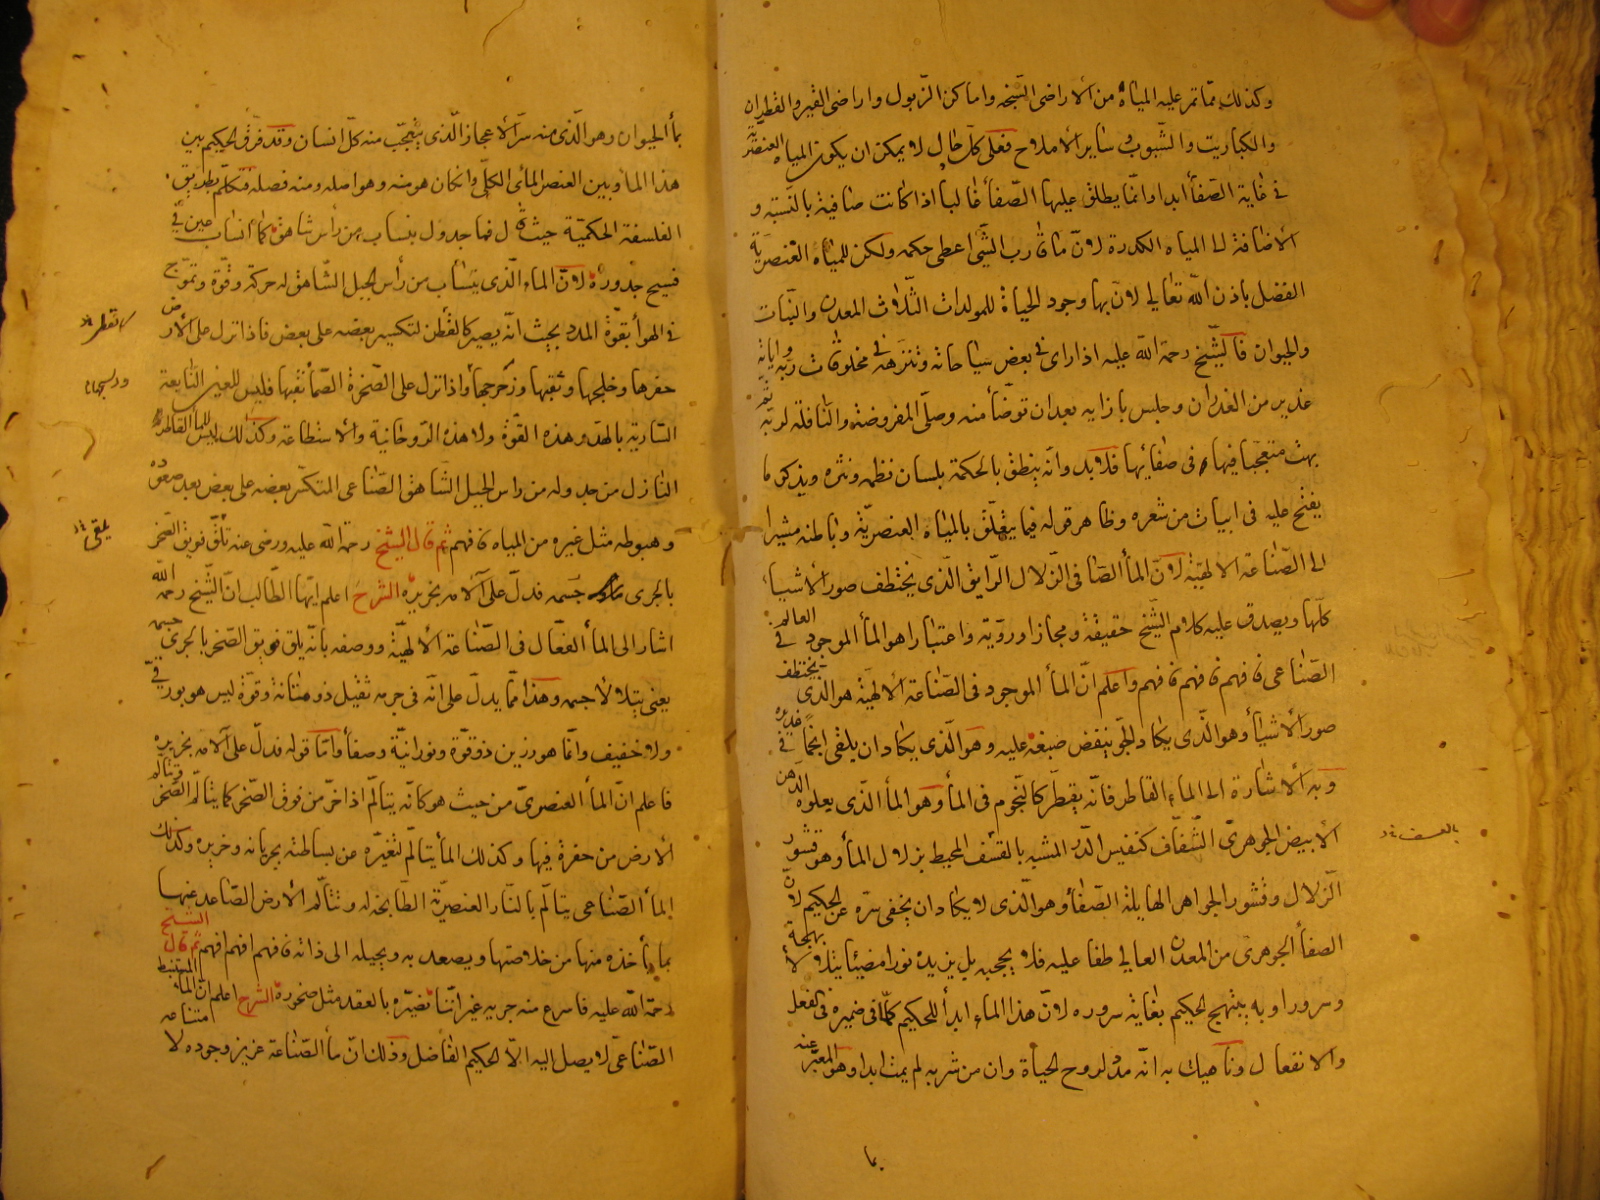 وكذلك مما تمر عليه المياه من الأراضى السبخه واماكن الزبول واراضى القير والقطران
والكباريت والشبوب وساير الأملاح فعلى كل حال لا يمكن ان يكون المياه العنصرية
فى غاية الصفأ ابدا وانما يطلق عليها الصفأ غالبا اذا كانت صافية بالنسبة و
الأضافة الى المياه الكدرة لانّ ما قارب الشئ اعطى حكمه ولكن للمياه العنصرية
الفضل باذن الله تعالى لانّ بها وجود الحياة للمولدات الثلاث المعدن والنبات
والحيوان فالشيخ رحمة الله عليه اذا راى فى بعض سياحاته وتنزهه فى مخلوقات ربه واياته
غدير من الغدران وجلس بازايه بعد ان توضأ منه وصلّى المفروضة والنافلة لربه ثم
بهت متعجبا فيها وفى صفائها فلا بد وانّه ينطق بالحكمة بلسان نظمه ونثره ويذكر ما
يفتح عليه فى ابيات من شعره وظاهر قوله فيما يتعلق بالمياه العنصرية وباطنه مشيرا
الى الصناعة الالهية لانّ المأ الصافى الزلال الرايق الذى يختطف صور الأشيأ
كلها ويصدق عليه كلام الشيخ حقيقة ومجازا وروّية واعتبارا هو المأ الموجود فى العالم
الصناعى فافهم فافهم فافهم واعلم انّ المأ الموجود فى الصناعة الألهية هو الذى يختطف
صور الأشيأ وهو الذى يكاد الجو ينفض صبغه عليه وهو الذى يكاد ان يلقى انجما فى غديره
وبه الأشارة الى الماء القاطر فانه يقطر كالنجوم فى المأ وهو المأ الذى يعلوه الدهن
الأبيض الجوهرى الشفاف كنفيس الدرّ المشبه بالقشف المحيط بزلال المأ وهو قشور
الزلال وقشور الجواهر الهايلة الصفأ وهو الذى لا يكاد ان يخفى سرّه عن الحكيم لانّ
الصفأ الجوهرى من المعدن العالى طفا عليه فلا يحجبه بل يزيده نورا مضيئا يتلألأ بهجة
وسرورا وبه يبتهج الحكيم بغاية سروره لانّ هذا الماء ابدأ للحكيم كلما فى ضميره فى الفعل
والانفعال وناهيك به انّه مدد لروح الحياة وان من شربه لم يمت ابدا وهو المعبّر عنه
بما
بالقشف
بمأ الحيوان وهو الذى منه سرّ الأعجاز الذى يتعجب منه كل انسان وقد فرّق الحكيم بين
هذا المأ وبين العنصر المائى الكلّى وان كان هو منه وهو اصله ومنه فصله فتكلم بطريق
الفلسفة الحكميّة حيث قال فما جدول ينساب من راس شاهق كما انساب عين فى
فسيح جدوره لانّ الماء الذى ينساب من رأس الجبل الشاهق له حركة وقوّة وتموّج
فى الهوأ بقوّة المدد بحيث انّه يصير كالقطن لتكسير بعضه على بعض فاذا نزل على الأرض
حفرها وخلجها وثقبها وزحرجها واذا نزل على الصخرة الصمأ ثقبها فليس للعين النابعة
السارية بالهدو هذه القوّة ولا هذه الروحانية والاستطاعة وكذلك ليس للمأ القاطر
النازل من جدوله من راس الجبل الشاهق الصناعى المتكسّر بعضه على بعض بعد صعوده
وهبوطه مثل غيره من المياه فافهم ثم قال الشيخ رحمة الله عليه ورضى عنه تألّق فويق الصخر
بالجرى جسمه فدلّ على آلامه بخريره الشرح اعلم ايها الطالب انّ الشيخ رحمه الله
اشار الى المأ الفعّال فى الصناعة الألهيّة ووصفه بانّه يلق فويق الصخر بالجرى جسمه
يعنى يتلالا جسمه وهذا مما يدلّ على انّه فى جرمه ثقيل ذو متانة وقوّة ليس هو بورقى
ولا خفيف وانّما هو رزين ذو قوّة ونورانيّة وصفأ وامّا قوله فدلّ على آلامه بخريره
فاعلم انّ المأ العنصرىّ من حيث هو كانّه يتألّم اذا خرّ من فوق الصخر كما يتألّم الصخر وتتألم
الأرض من حفرة فيها وكذلك المأ يتألّم لتغيّره عن بساطته بجريانه وخريره وكذلك
المأ الصناعى يتألّم بالنار العنصريّة الطابخة له وتتألّم الأرض الصاعد عنها
بما يأخذه منها من خلاصتها ويصعد به ويحيله الى ذاته فافهم افهم افهم ثم قال الشيخ
رحمة الله عليه فاسرع منه جريه غير اننا نصيّره بالعقد مثل صخوره الشرح اعلم انّ المأ المستنبط
الصناعى لا يصل اليه الاّ الحكيم الفاضل وذلك انّ مأ الصناعة عزيز وجوده لا متناعه